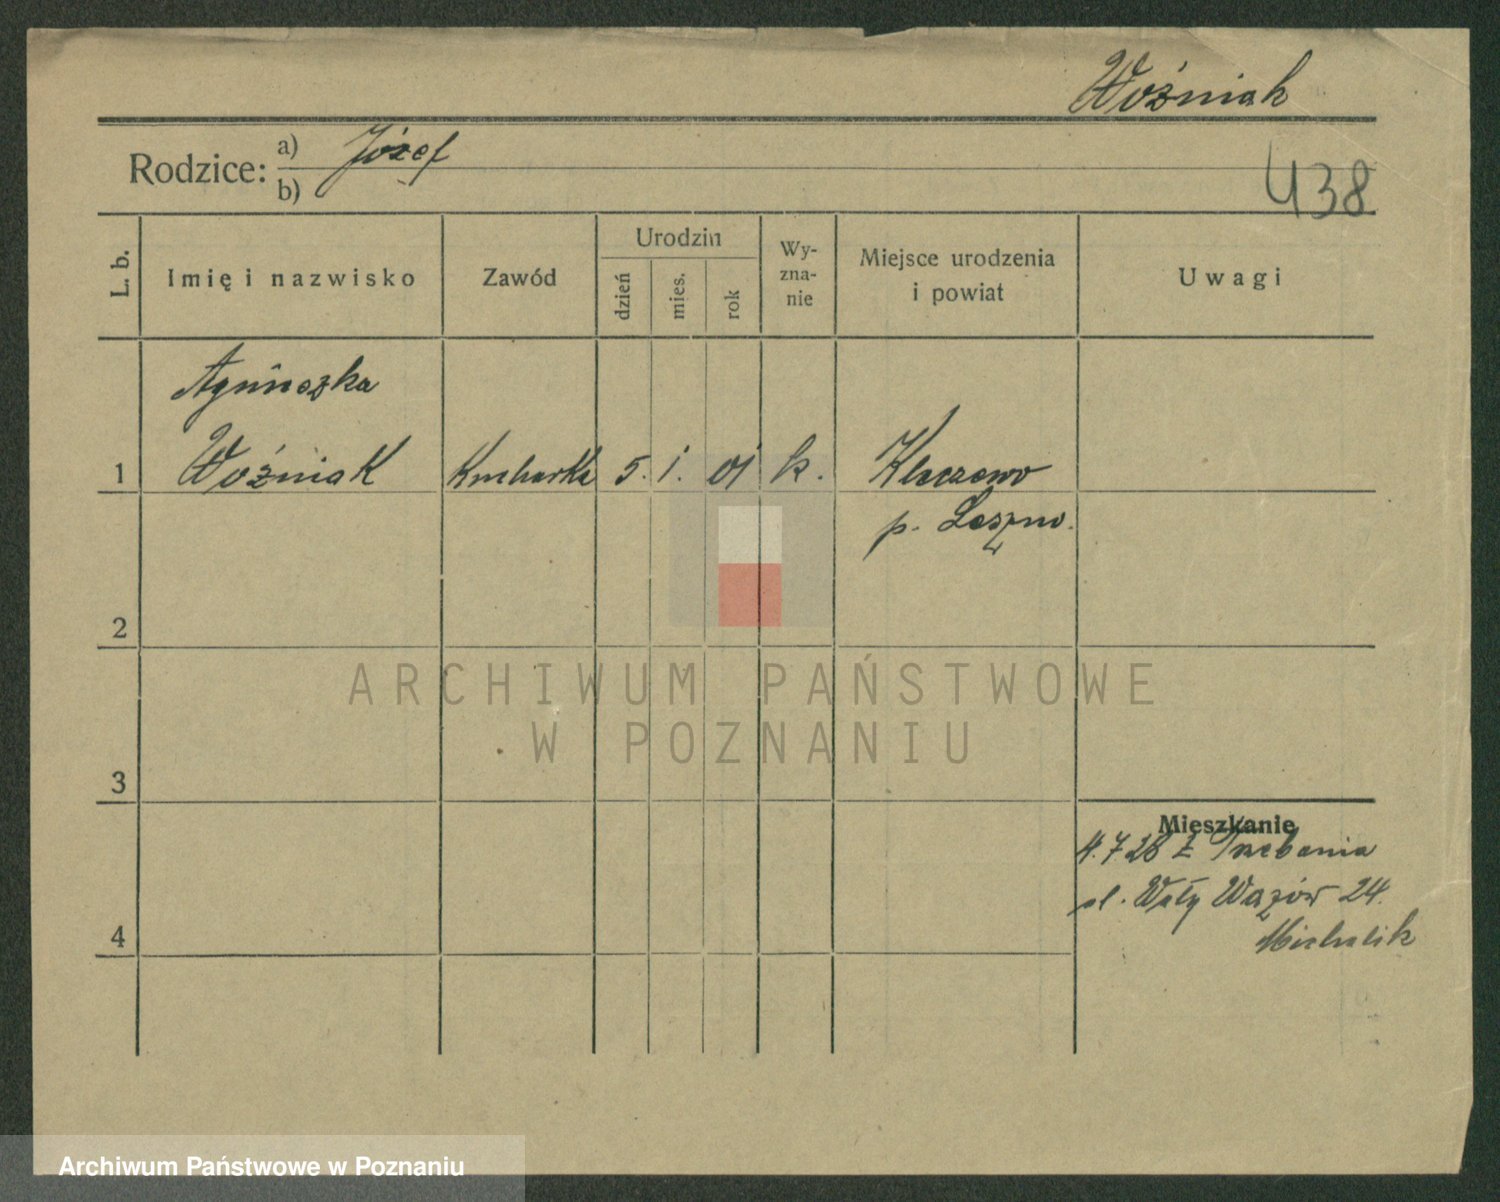 Woźniak
Rodzice: a) Józef
b)
438
L. b.
Imię i nazwisko
Zawód
Urodzin
dzień
mies.
rok
Wy-
zna-
nie
Miejsce urodzenia
i powiat
Uwagi
Agnieszka
1 Woźniak Kucharka 5. 1. 01 k. Kleczewo
p. Leszno.
2
3
4
Mieszkanie
4.7 28 z Trzebania
ul. Wały Wazów 24.
Michalik
ARCHIWUM PAŃSTWOWE
W POZNANIU
Archiwum Państwowe w Poznaniu